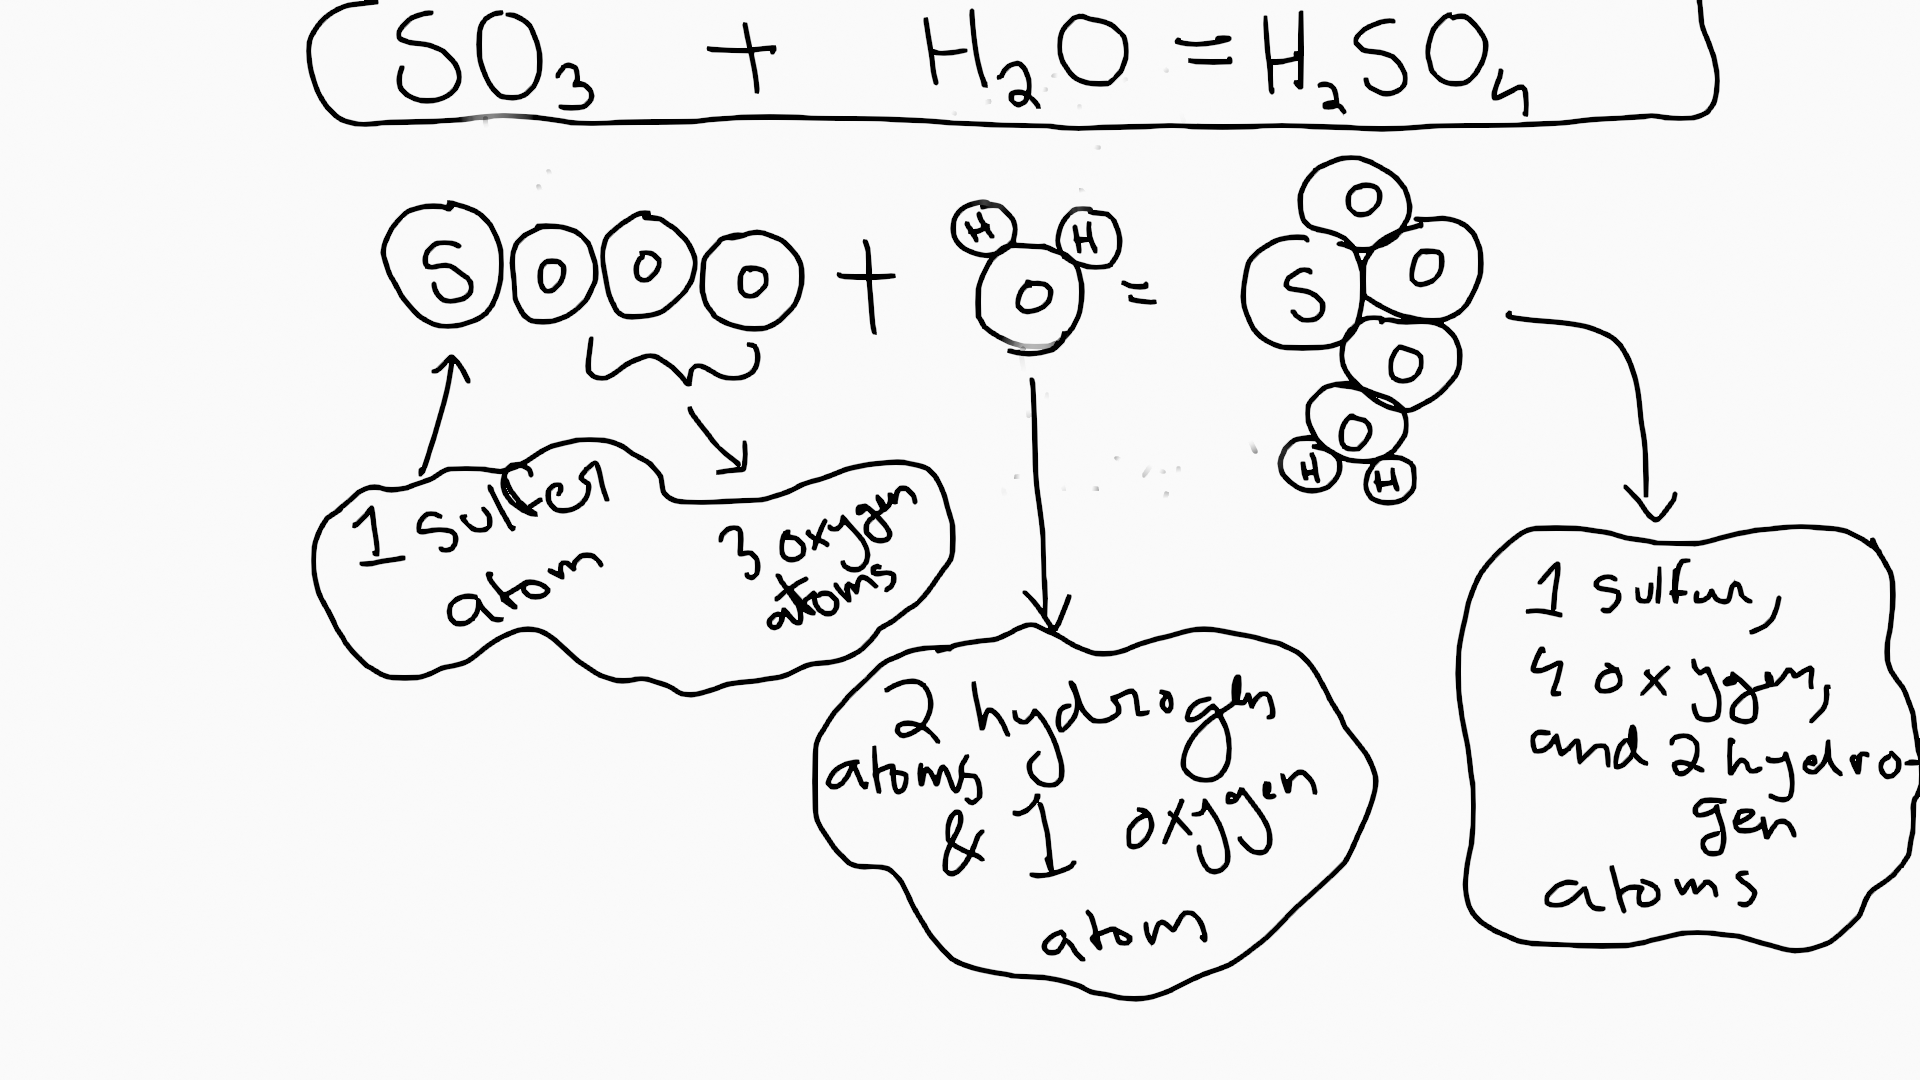 SO3 + H2O = H2SO4
S O O O + H H O = O S O O O H H
1 sulfer
atom
3 oxygen
atoms
2 hydrogen
atoms
& 1 oxygen
atom
1 sulfur,
4 oxygen,
and 2 hydro-
gen
atoms